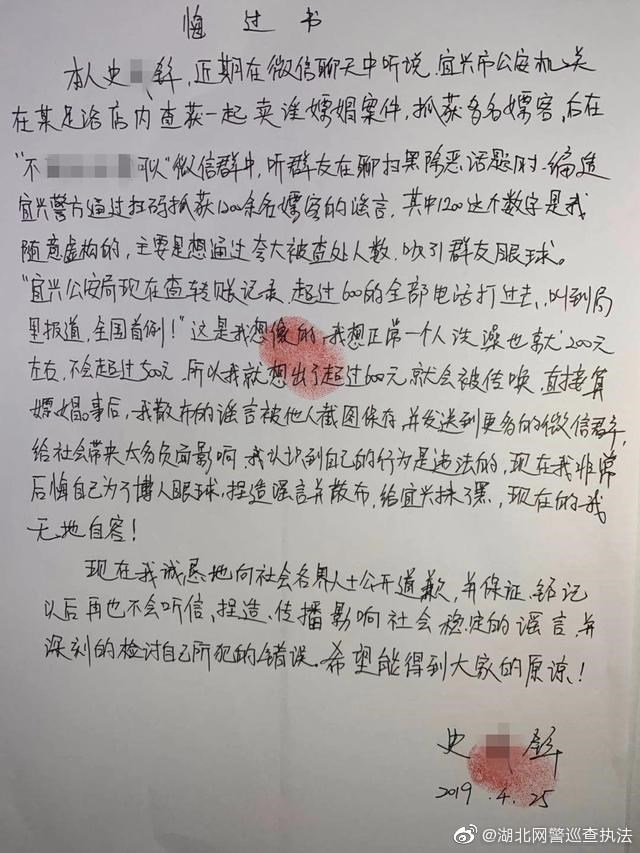 悔过书
本人史 锋,近期在微信聊天中听说,宜兴市公安机关
在某足浴店内查获一起卖淫嫖娼案件,抓获多名嫖客,后在
"不 可以"微信群中,听群友在聊扫黑除恶话题时,编造
宜兴警方通过扫码抓获1200余名嫖客的谣言,其中1200这个数字是我
随意虚构的,主要是想通过夸大被查处人数,吸引群友眼球。
"宜兴公安局现在查转账记录,超过600的全部电话打过去,叫到局
里报道,全国首例!"这是我想像的,我想正常一个人洗澡也就200元
左右,不会超过500元,所以我就想出了超过600元就会被传唤,直接算
嫖娼。事后,我散布的谣言被他人截图保存,并发送到更多的微信群,
给社会带来太多负面影响,我认识到自己的行为是违法的,现在我非常
后悔自己为了博人眼球,捏造谣言并散布,给宜兴抹了黑,现在的我
无地自容!
现在我诚恳地向社会各界人士公开道歉,并保证,铭记
以后再也不会听信、捏造、传播影响社会稳定的谣言,并
深刻的检讨自己所犯的错误。希望能得到大家的原谅!
史 锋
2019.4.25
@湖北网警巡查执法